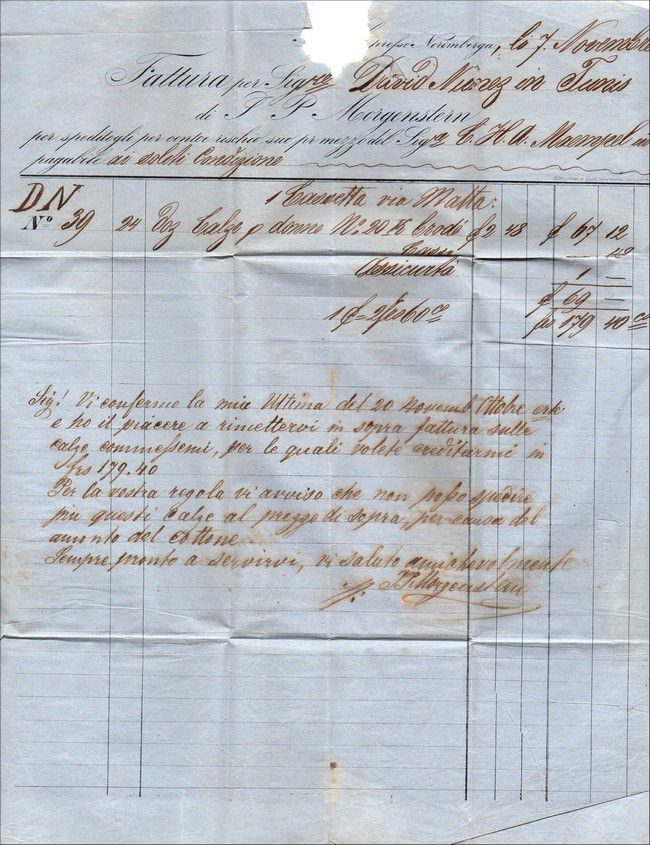 presso Norimberga, lo 7. Novembre
Fattura per Sigre David Nunez in Tunis
di J P Morgenstern
per speditogli per conto e rischio suo pr mezzo del Sigre C. H. A. Mampel in
pagabile ai soliti Condizione
1 Cassetta via Malta.
DN
No 39 24 Doz Calze p donne No. 20 K Crudi f 2 48 f 67 12
Cassa 48
Assicurta 1 —
f 69 —
1 f = 2 frs 60 cs frs 179 40 cs
Sig! Vi confermo la mia Ultima del 20 Ottobre
e ho il piacere a rimettervi in sopra fattura sulle
calze commessemi, per le quali volete creditarmi in
frs 179.40
Per la vostra regola vi avviso che non posso spedire
piu questi Calze al prezzo di sopra, per causa del
aumento del Cottone
Sempre pronto a servirvi, vi saluto amichevolmente
JP Morgenstern